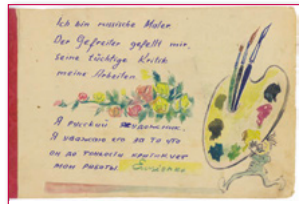 Ich bin russische Maler
Der Gefreiter gefellt mir,
seine tüchtige Kritik
meine Arbeiten
Я русский художник.
Я уважаю его за то что
он до тонкости критикует
мои работы